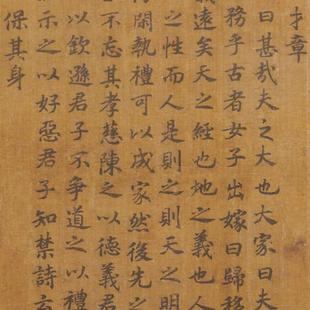 才章
曰甚哉夫之大也大家曰夫
務乎古者女子出嫁曰歸移
遠矣天之經也地之義也人
之性而人是則之則天之明
閑執禮可以成家然後先之
不忘其孝慈陳之以德義君
以欽遜君子不爭道之以禮
示之以好惡君子知禁詩云
保其身